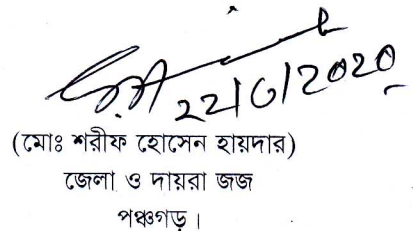 22/6/2020
(মোঃ শরীফ হোসেন হায়দার)
জেলা ও দায়রা জজ
পঞ্চগড়।